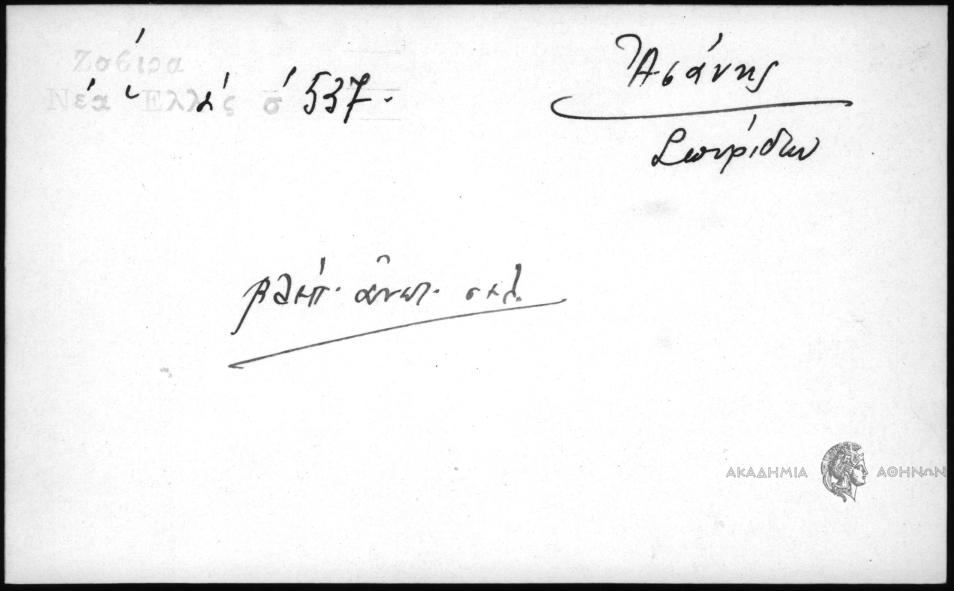 Ζαβίρα
Νέα Ἑλλάς σ 537.
Ἀσάνης
Σπυρίδων
βλέπ. ἀνωτ. σελ.
ΑΚΑΔΗΜΙΑ ΑΘΗΝΩΝ